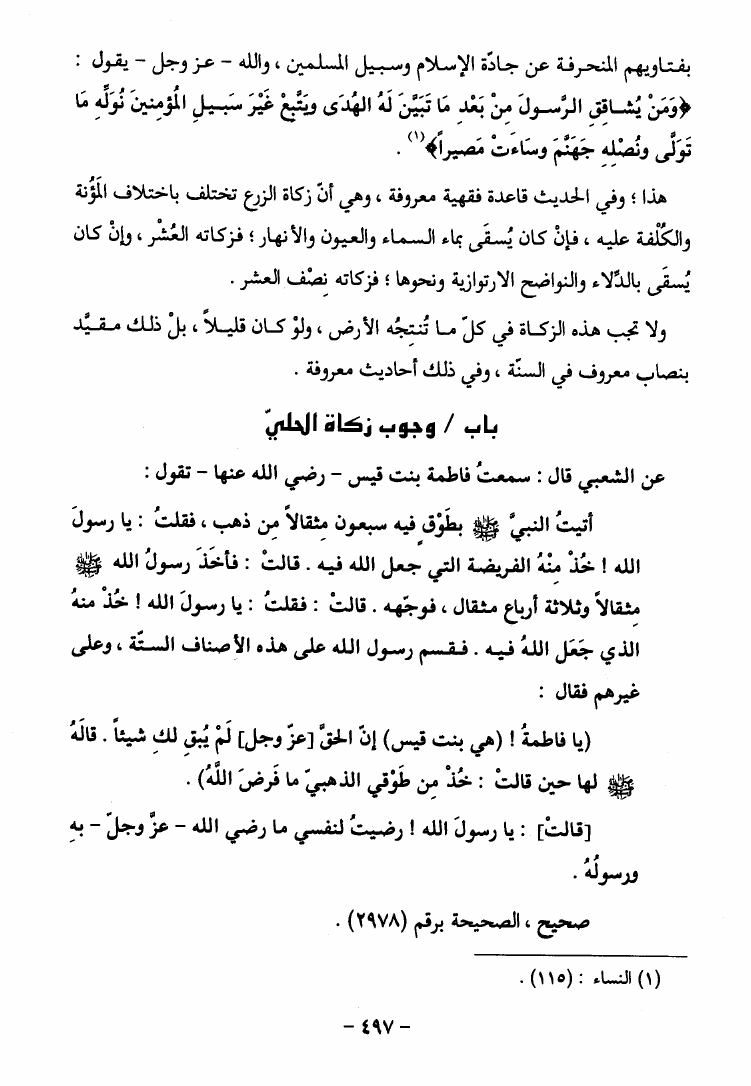 بفتاويهم المنحرفة عن جادّة الإسلام وسبيل المسلمين ، والله - عز وجل - يقول :
﴿وَمَنْ يُشاقِقِ الرَّسولَ مِنْ بَعْدِ مَا تَبَيَّنَ لَهُ الهُدَى ويَتَّبِعْ غَيْرَ سَبيلِ المُؤمِنينَ نُوَلِّهِ مَا
تَوَلَّى ونُصْلِهِ جَهَنَّمَ وسَاءَتْ مَصيراً﴾(١) .
هذا ؛ وفي الحديث قاعدة فقهية معروفة ، وهي أنّ زكاة الزرع تختلف باختلاف المُؤْنة
والكُلْفة عليه ، فإنْ كان يُسقَى بماء السماء والعيون والأنهار ؛ فزكاته العُشْر ، وإنْ كان
يُسقَى بالدِّلاء والنواضح الارتوازية ونحوها ؛ فزكاته نِصْف العشر .
ولا تجب هذه الزكاة في كلّ ما تُنتِجُه الأرض ، ولوْ كان قليلاً ، بلْ ذلك مقيَّد
بنصاب معروف في السنّة ، وفي ذلك أحاديث معروفة .
باب / وجوب زكاة الحليّ
عن الشعبي قال : سمعتُ فاطمة بنت قيس - رضي الله عنها - تقول :
أتيتُ النبيَّ ﷺ بطَوْقٍ فيه سبعون مثقالاً مِن ذهب ، فقلتُ : يا رسولَ
الله ! خُذْ مِنْهُ الفريضة التي جعل الله فيه . قالتْ : فأخَذَ رسولُ الله ﷺ
مثقالاً وثلاثة أرباع مثقال ، فوجّهه . قالتْ : فقلتُ : يا رسولَ الله ! خُذْ منهُ
الذي جَعَل اللهُ فيه . فقسم رسول الله على هذه الأصناف الستّة ، وعلى
غيرهم فقال :
(يا فاطمةُ ! (هي بنت قيس) إنّ الحقَّ [عزّ وجل] لَمْ يُبقِ لكِ شيئاً . قالَهُ
ﷺ لها حين قالتْ : خُذْ مِن طَوْقي الذهبيّ ما فَرضَ اللَّهُ) .
[قالتْ] : يا رسولَ الله ! رضيتُ لنفسي ما رضي الله - عزَّ وجلّ - بهِ
ورسولُهُ .
صحيح ، الصحيحة برقم (٢٩٧٨) .
(١) النساء : (١١٥) .
- ٤٩٧ -